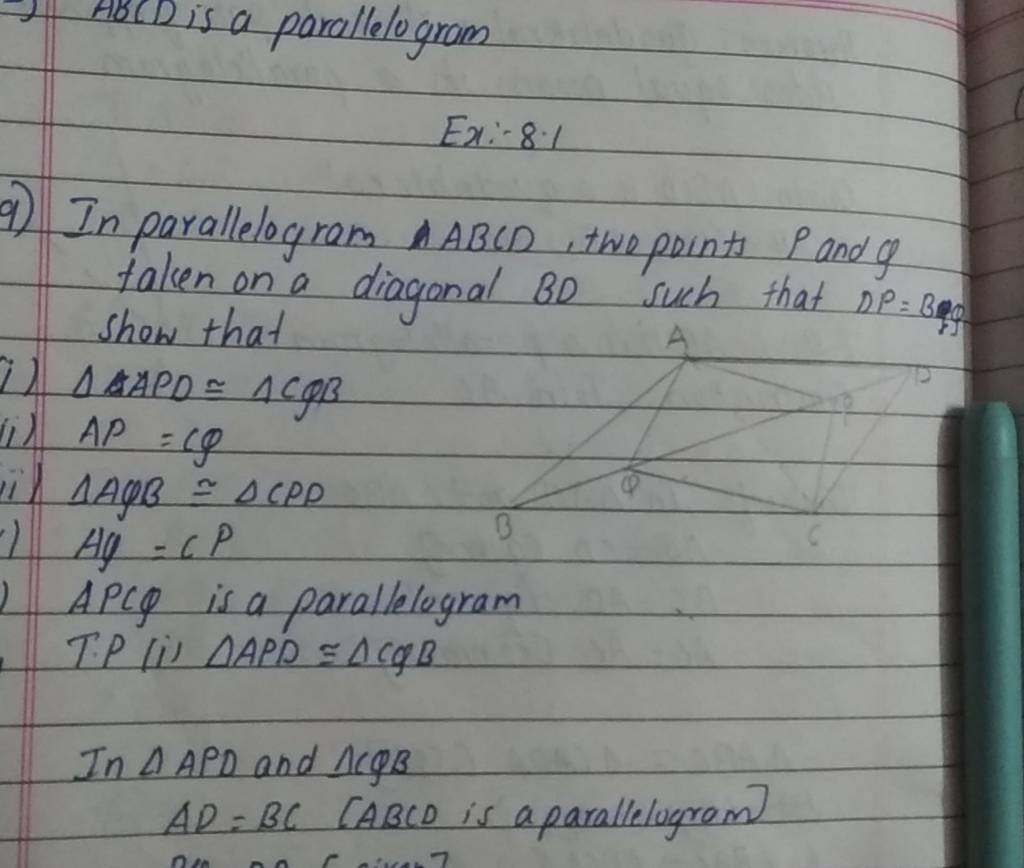 ABCD is a parallelogram
Ex:- 8.1
9) In parallelogram ABCD, two points P and Q
taken on a diagonal BD such that DP = BQ
show that
i) ΔAPD ≅ ΔCQB
ii) AP = CQ
ii) ΔAQB ≅ ΔCPD
) AQ = CP
) APCQ is a parallelogram
T.P (i) ΔAPD ≅ ΔCQB
In Δ APD and ΔCQB
AD = BC [ABCD is a parallelogram]
[given]
A
D
P
Q
B
C